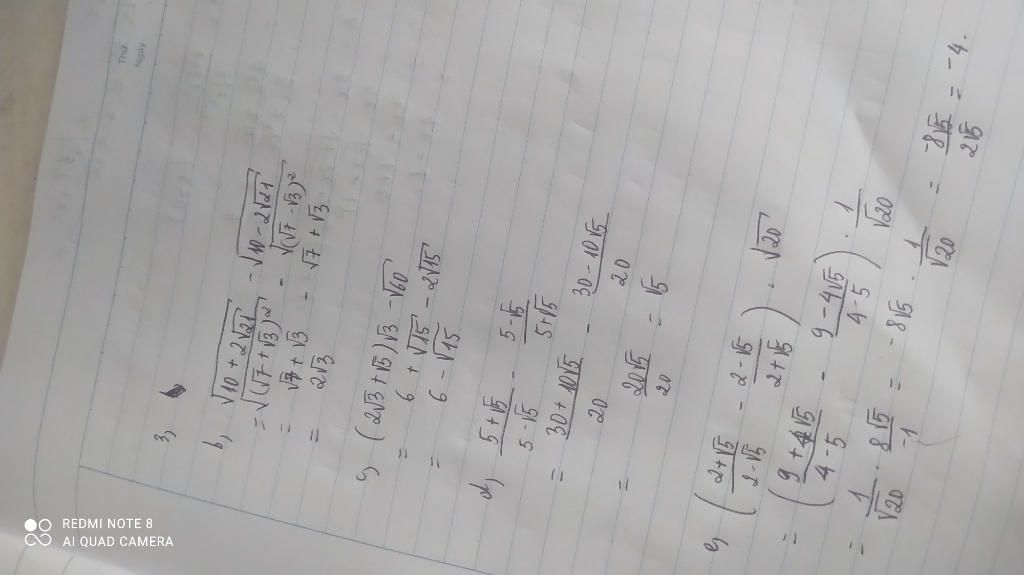 Thứ
Ngày
3,
b, √10 + 2√21 - √10 - 2√21
= √(√7 + √3)² - √(√7 - √3)²
= √7 + √3 - √7 + √3
= 2√3
c, (2√3 + √5)√3 - √60
= 6 + √15 - 2√15
= 6 - √15
d, 5+√5 / 5-√5 - 5-√5 / 5+√5
= 30 + 10√5 / 20 - 30 - 10√5 / 20
= 20√5 / 20 = √5
e, (2+√5 / 2-√5 - 2-√5 / 2+√5) : √20
= (9 + 4√5 / 4-5 - 9 - 4√5 / 4-5) . 1 / √20
= 1 / √20 . 8√5 / -1 = -8√5 . 1 / √20 = -8√5 / 2√5 = -4.
REDMI NOTE 8
AI QUAD CAMERA